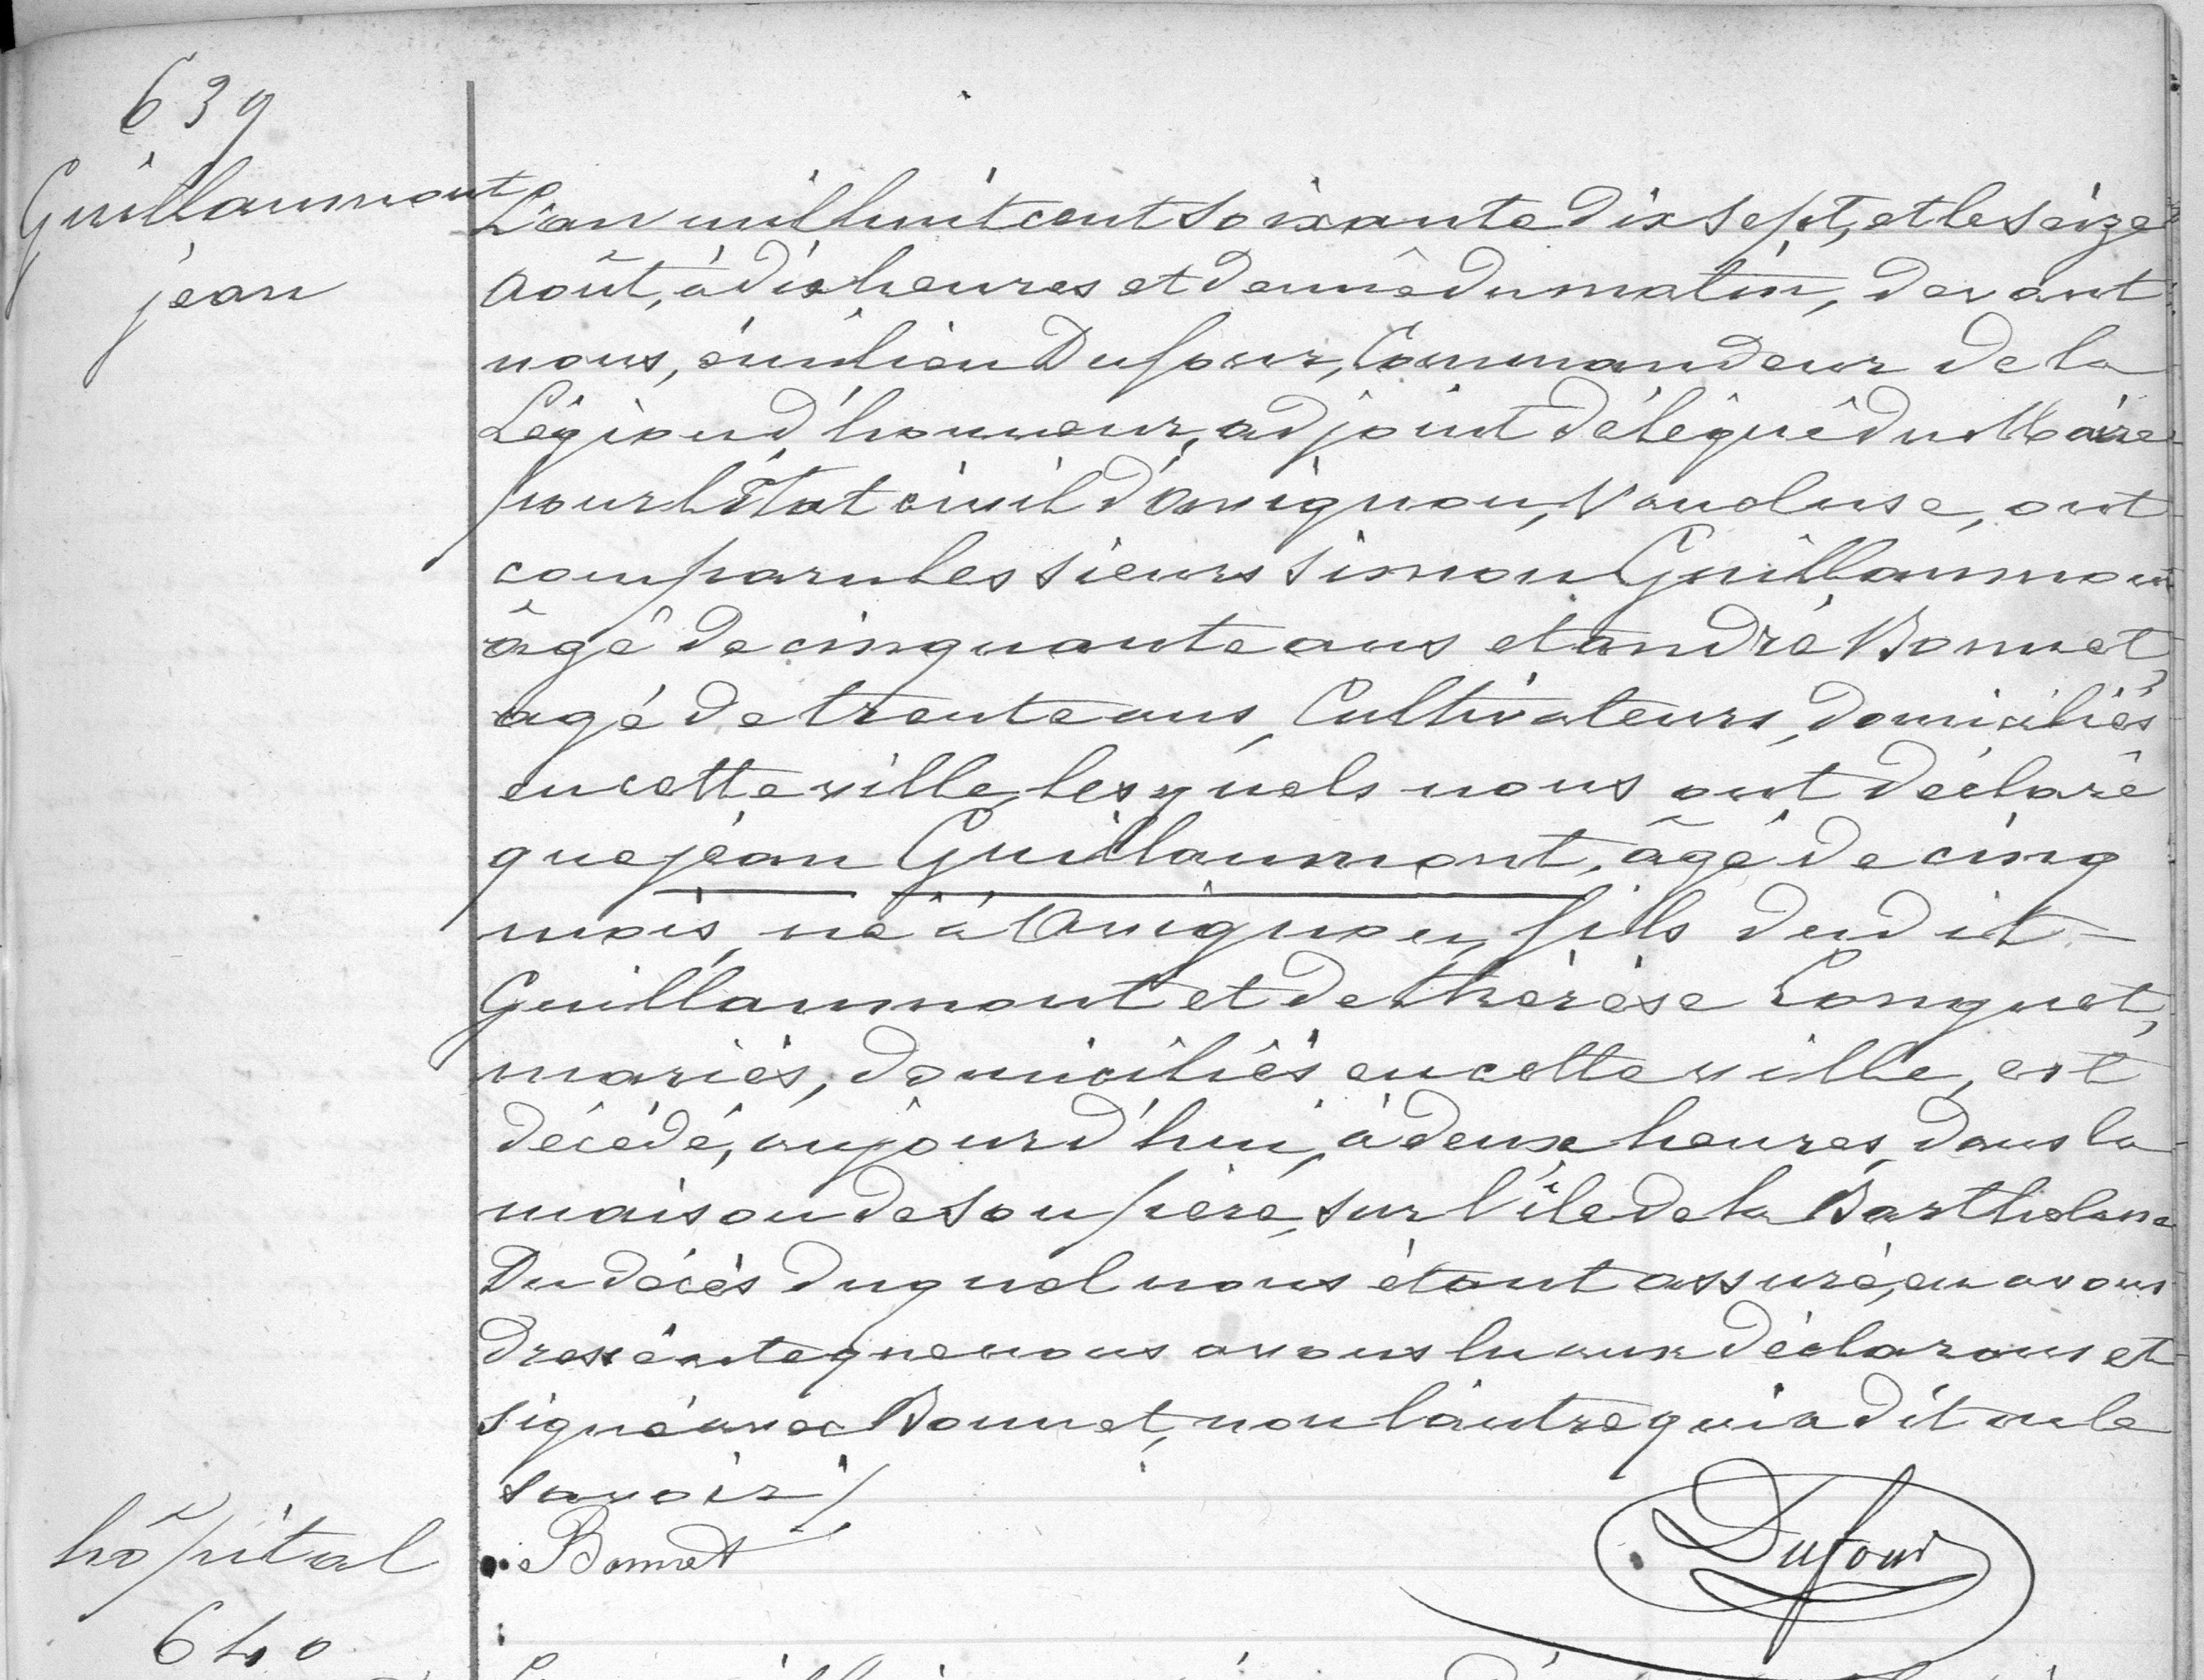 639
Guillaumont
jean
L'an mil huit cent soixante dix sept, et le seize
Août, à dix heures et demie du matin, devant
nous, émilien Dufour, Commandeur de la
Légion d'honneur, adjoint délégué du Maire
pour l'État civil d'Avignon, Vaucluse, ont
comparu les sieurs Simon Guillaumont
âgé de cinquante ans et andré Bonnet,
agé de trente ans, Cultivateurs, domiciliés
en cette ville, lesquels nous ont déclaré
que jean Guillaumont, âgé de cinq
mois, né à Avignon, fils dudit
Guillaumont et de thérèse Longuet,
mariés, domiciliés en cette ville, est
décédé, aujourd'hui, à deux heures, dans la
maison de son père, sur l'île de la Barthelasse
Du décès duquel nous étant assuré, en avons
dressé acte que nous avons lu aux déclarans et
signé avec Bonnet, non l'autre qui a dit ne le
savoir /
Bonnet
Dufour
hôpital
640